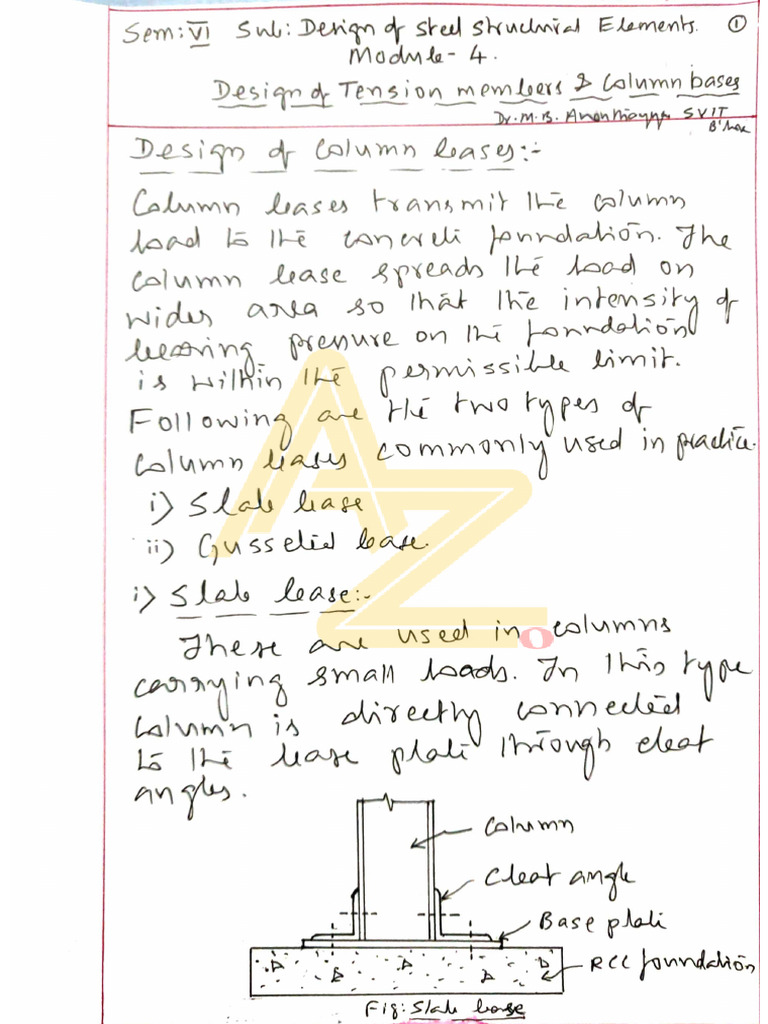 Sem: VI Sub: Design of Steel Structural Elements. 1
Module - 4.
Design of Tension members & Column bases
Dr. M. B. SVIT
Design of Column bases:-
Column bases transmit the column
load to the concrete foundation. The
column base spreads the load on
wider area so that the intensity of
bearing pressure on the foundation
is within the permissible limit.
Following are the two types of
column bases commonly used in practice.
i) Slab base
ii) Gusseted base.
i) Slab base:-
These are used in columns
carrying small loads. In this type
column is directly connected
to the base plate through cleat
angles.
Column
Cleat angle
Base plate
RCC foundation
Fig: Slab base
AZ